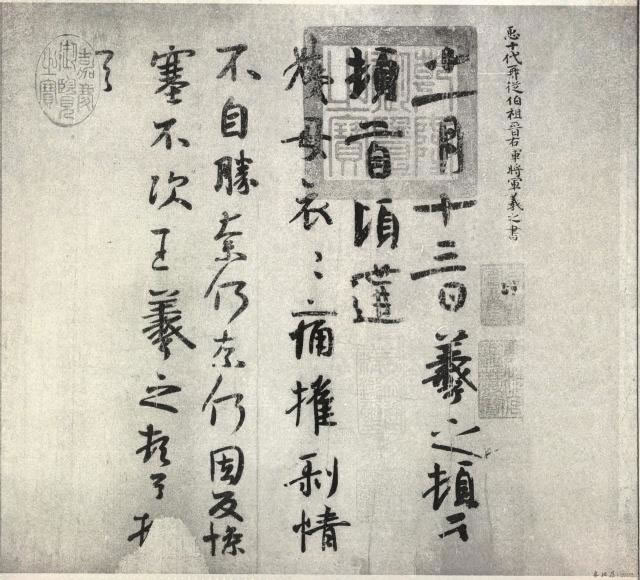 十代再從伯祖晉右軍將軍羲之書
十一月十三日羲之頓首
頓首頃遘
姨母哀〻痛摧剝情
不自勝奈何奈何因反慘
塞不次王羲之頓首頓
首
乾隆御覽之寶
嘉慶御覽之寶